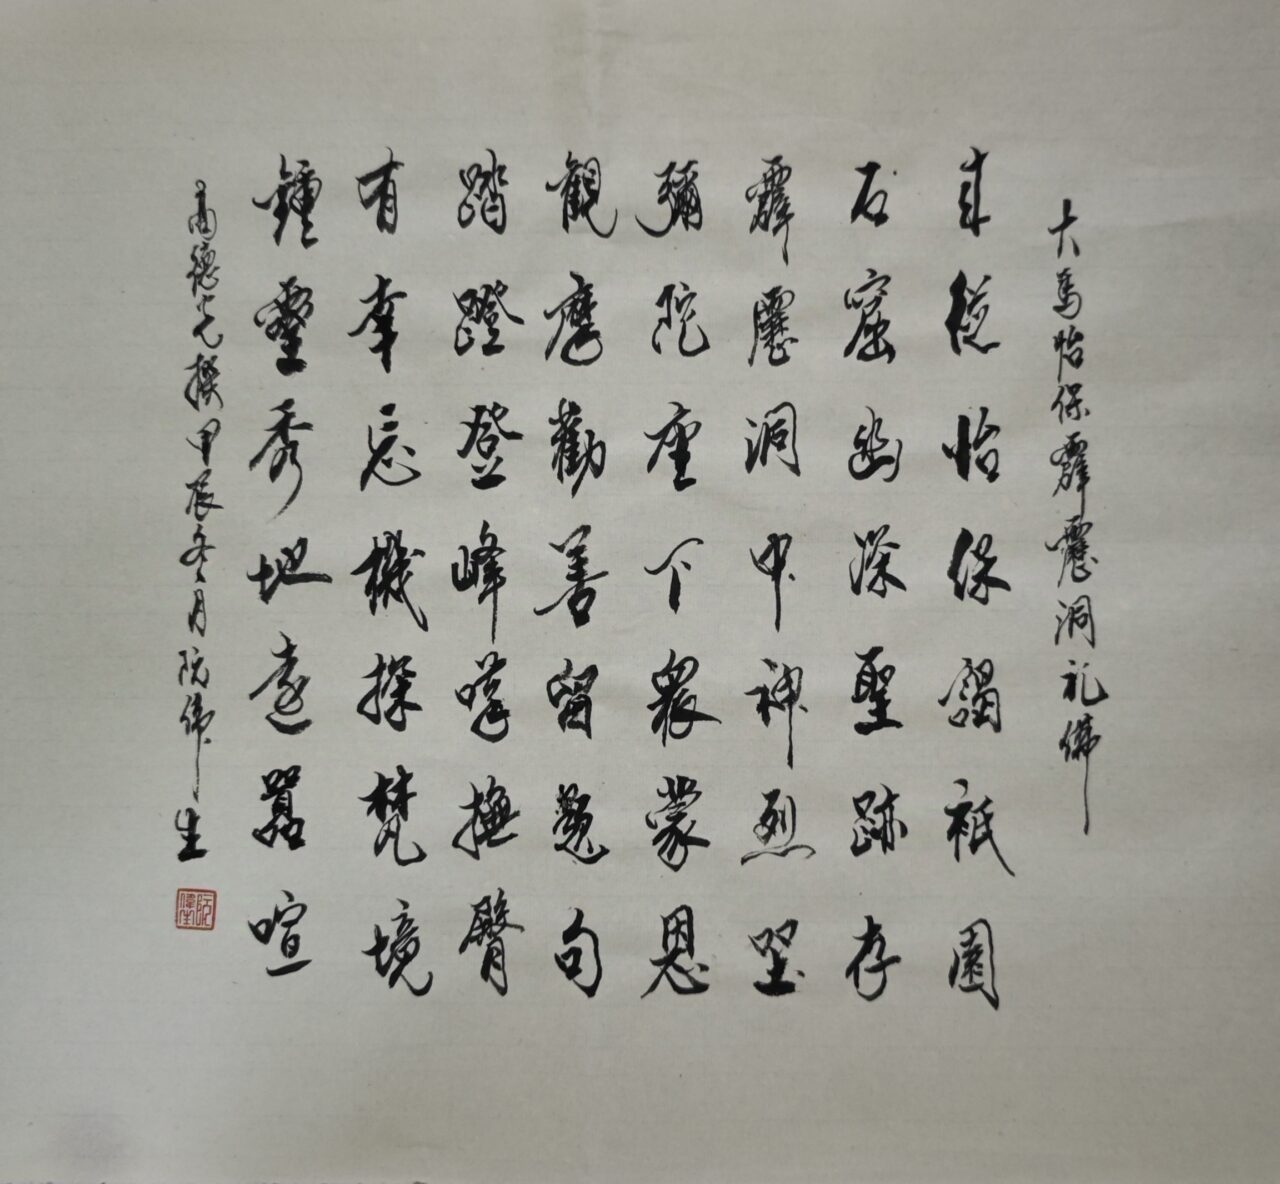 大馬怡保霹靂洞礼佛
來從怡保謁祇園
石窟幽深聖跡存
霹靂洞中神烈堅
彌陀座下眾蒙恩
觀摩勸善留甎句
踏蹬登峰嘆撫臀
有幸忘機探梵境
鍾靈秀地遠囂喧
高德光撰甲辰冬月阮偉生
阮偉生